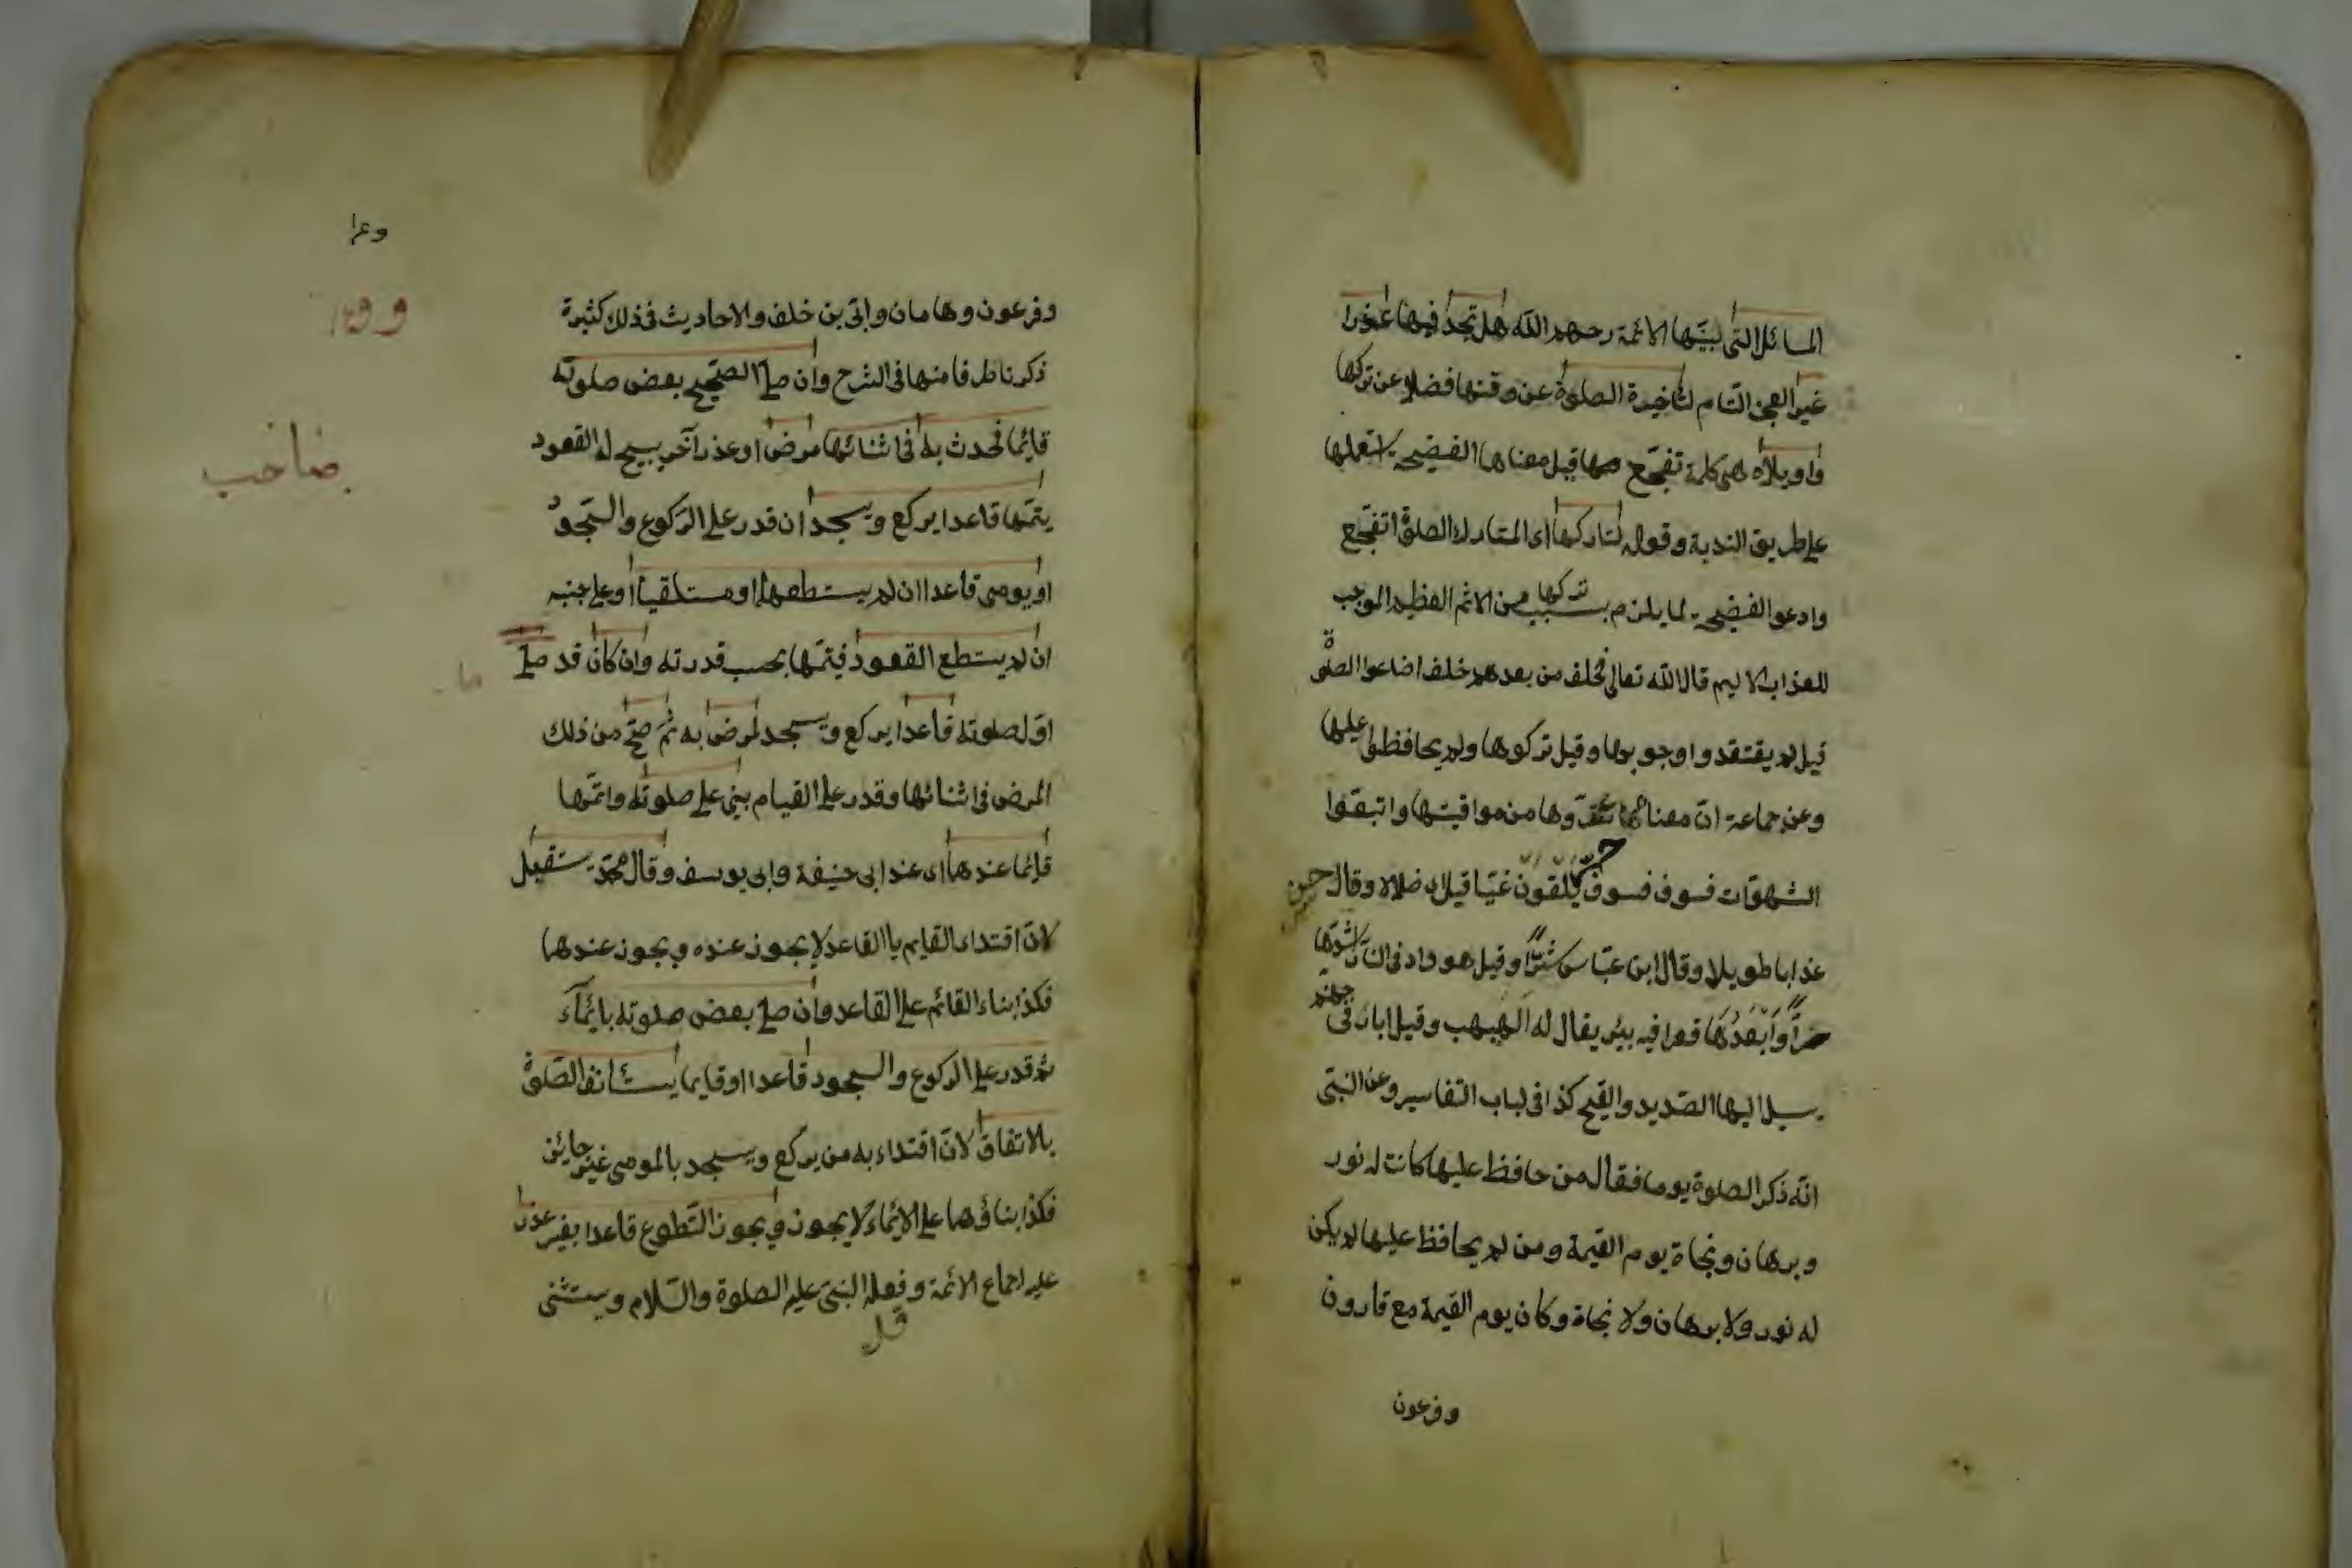 المسائل التى بينها الائمة رحمهم الله هل تجد فيها عذرا
غير العجز التام لتأخيرة الصلوة عن وقتها فضلا عن تركها
واويلاه هى كلمة تفجع قيل معناها الفضيحة استعملها
على طريق الندبة وقوله لتاركها اى المتارك الصلوة اتفجع
وادعو الفضيحة لما يلزم بسبب تركها من الاثم العظيم الموجب
للعذاب الاليم قال الله تعالى فخلف من بعدهم خلف اضاعوا الصلوة
قيل لم يعتقدوا وجوبها وقيل تركوها ولم يحافظوا عليها
وعن جماعة ان معناها من مواقيتها واتبعوا
الشهوات فسوف فسوف يلقون غيا قيل اى ضلالا وقال
عذابا طويلا وقال ابن عباس شرا وقيل هو واد فى النار اشدها
حرا وابعدها قعرا فيه بئر يقال له الهبهب وقيل ابار فى جهنم
يسيل اليها الصديد والقيح كذا فى لباب التفاسير وعن النبى
انه ذكر الصلوة يوما فقال من حافظ عليها كانت له نور
وبرهان ونجاة يوم القيمة ومن لم يحافظ عليها لم يكن
له نور ولا برهان ولا نجاة وكان يوم القيمة مع قارون
وفرعون
وفرعون وهامان وابى بن خلف والاحاديث فى ذلك كثيرة
ذكرنا طرفا منها فى الشرح وان صلى الصحيح بعض صلوته
قايما فحدث به فى اثنائها مرض او عذر آخر يبيح له القعود
يتمها قاعدا يركع ويسجد ان قدر على الركوع والسجود
او يومى قاعدا ان لم يستطعهما او مستلقيا او على جنبه
ان لم يستطع القعود فيتمها بحسب قدرته وان كان قد صلى
اول صلوته قاعدا يركع ويسجد لمرض به ثم صح من ذلك
المرض فى اثنائها وقدر على القيام بنى على صلوته واتمها
قائما عندهما اى عند ابى حنيفة وابى يوسف وقال محمد يستقبل
لان اقتداء القايم باالقاعد لا يجوز عنده ويجوز عندهما
فكذا بناء القائم على القاعد وان صلى بعض صلوته بايماء
ثم قدر على الركوع والسجود قاعدا او قايما يستانف الصلوة
بالاتفاق لان اقتداء به من يركع ويسجد بالمومى غير جائز
فكذا بناؤهما على الايماء لا يجوز ويجوز التطوع قاعدا بغير عذر
عليه اجماع الائمة وفعله النبى عليه الصلوة والسلام ويستثنى